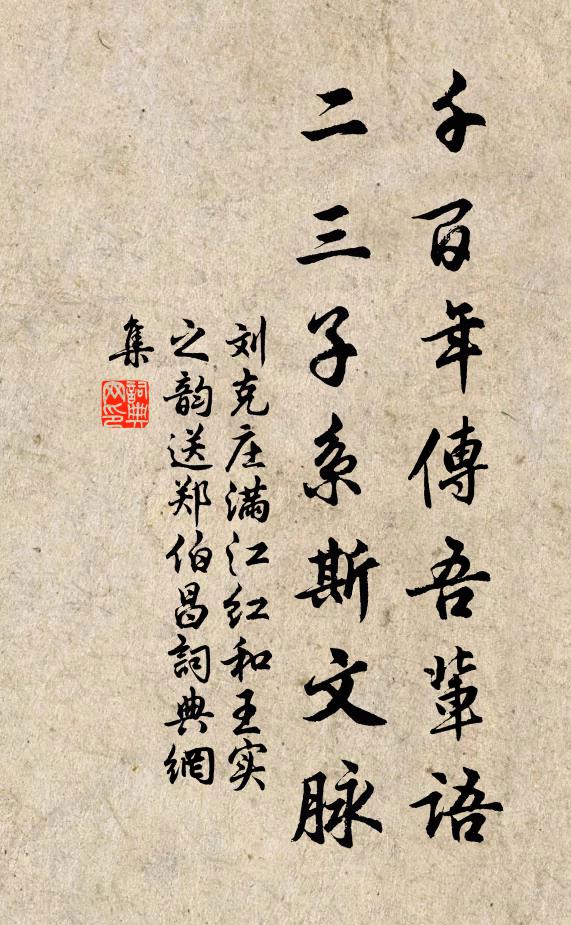 千百年傳吾輩語
二三子系斯文脉
刘克庄满江红和王实
之韵送郑伯昌詞典網
集
詞典网印